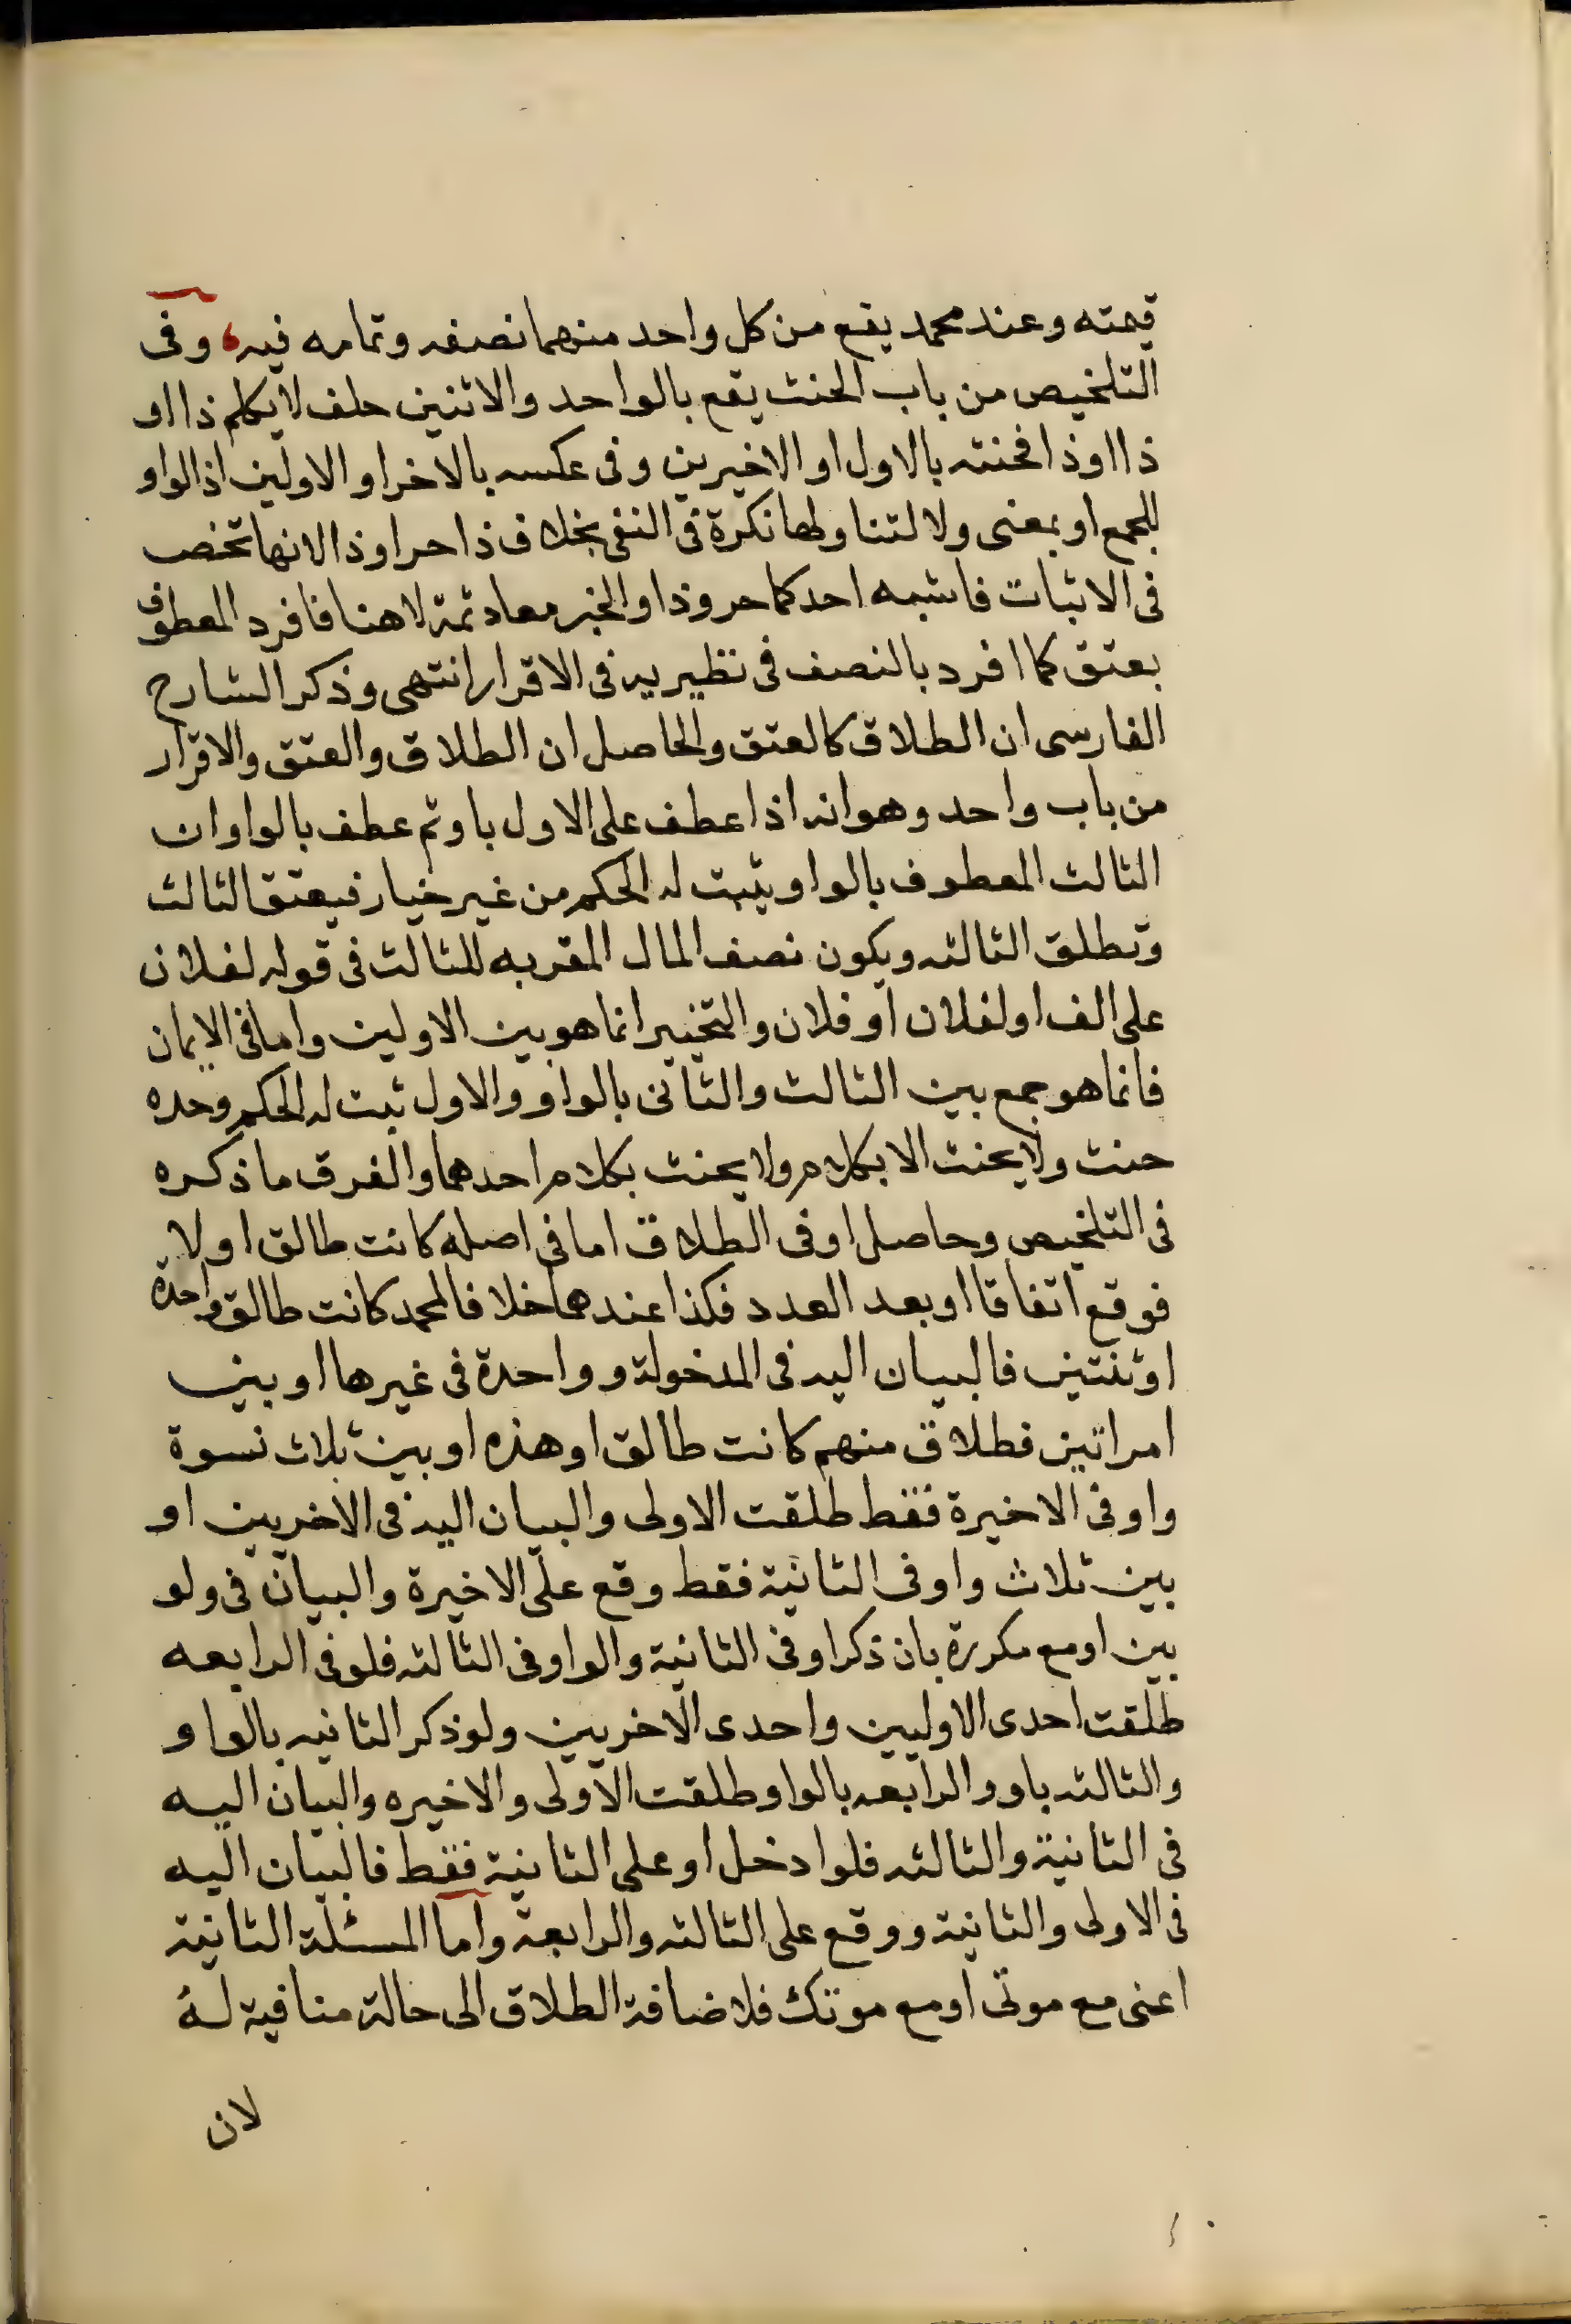 قيمته وعند محمد يقع من كل واحد منهما نصفه وتمامه فيه، وفى
التلخيص من باب الحنث يقع بالواحد والاثنين حلف لا يكلم ذا او
ذا او ذا فحنثه بالاول او الاخيرين وفى عكسه بالاخر او الاولين اذ الواو
للجمع او بمعنى ولا لتناولها نكرة فى النفى بخلاف ذا حر او ذا لانها تخص
فى الاثبات فاشبه احدكما حر وذا والخبر معاد ثمة لا هنا فافرد المعطوف
بعتق كما افرد بالنصف فى نظيريه فى الاقرار انتهى وذكر الشارح
الفارسى ان الطلاق كالعتق والحاصل ان الطلاق والعتق والاقرار
من باب واحد وهو انه اذا عطف على الاول باو ثم عطف بالواو ان
الثالث المعطوف بالواو يثبت له الحكم من غير خيار فيعتق الثالث
وتطلق الثالثه ويكون نصف المال المقر به للثالث فى قوله لفلان
على الف او لفلان او فلان والتخيير انما هو بين الاولين واما فى الايمان
فانما هو جمع بين الثالث والثانى بالواو والاول ثبت له الحكم وحده
حنث ولا يحنث الا بكلام ولا يحنث بكلام احدهما والفرق ما ذكره
فى التلخيص وحاصل او فى الطلاق اما فى اصله كانت طالق او لا
فوقع اتفاقا او بعد العدد فكذا عندهما خلافا لمحمد كانت طالق واحدة
او ثنتين فالبيان اليه فى المدخولة وواحدة فى غيرها او بين
امراتين فطلاق منهم كانت طالق او هذه او بين ثلاث نسوة
واو فى الاخيرة فقط طلقت الاولى والبيان اليه فى الاخريين او
بين ثلاث واو فى الثانية فقط وقع على الاخيرة والبيان فى ولو
بين اومع مكررة بان ذكر او فى الثانية والواو فى الثالثه فلو فى الرابعه
طلقت احدى الاوليين واحدى الاخريين ولو ذكر الثانيه بالواو
والثالثه باو والرابعه بالواو طلقت الاولى والاخيره والبيان اليه
فى الثانية والثالثه فلو ادخل او على الثانية فقط فالبيان اليه
فى الاولى والثانية ووقع على الثالثه والرابعة واما المسئلة الثانية
اعنى مع موتى او مع موتك فلاضافة الطلاق الى حالة منافية له
لان